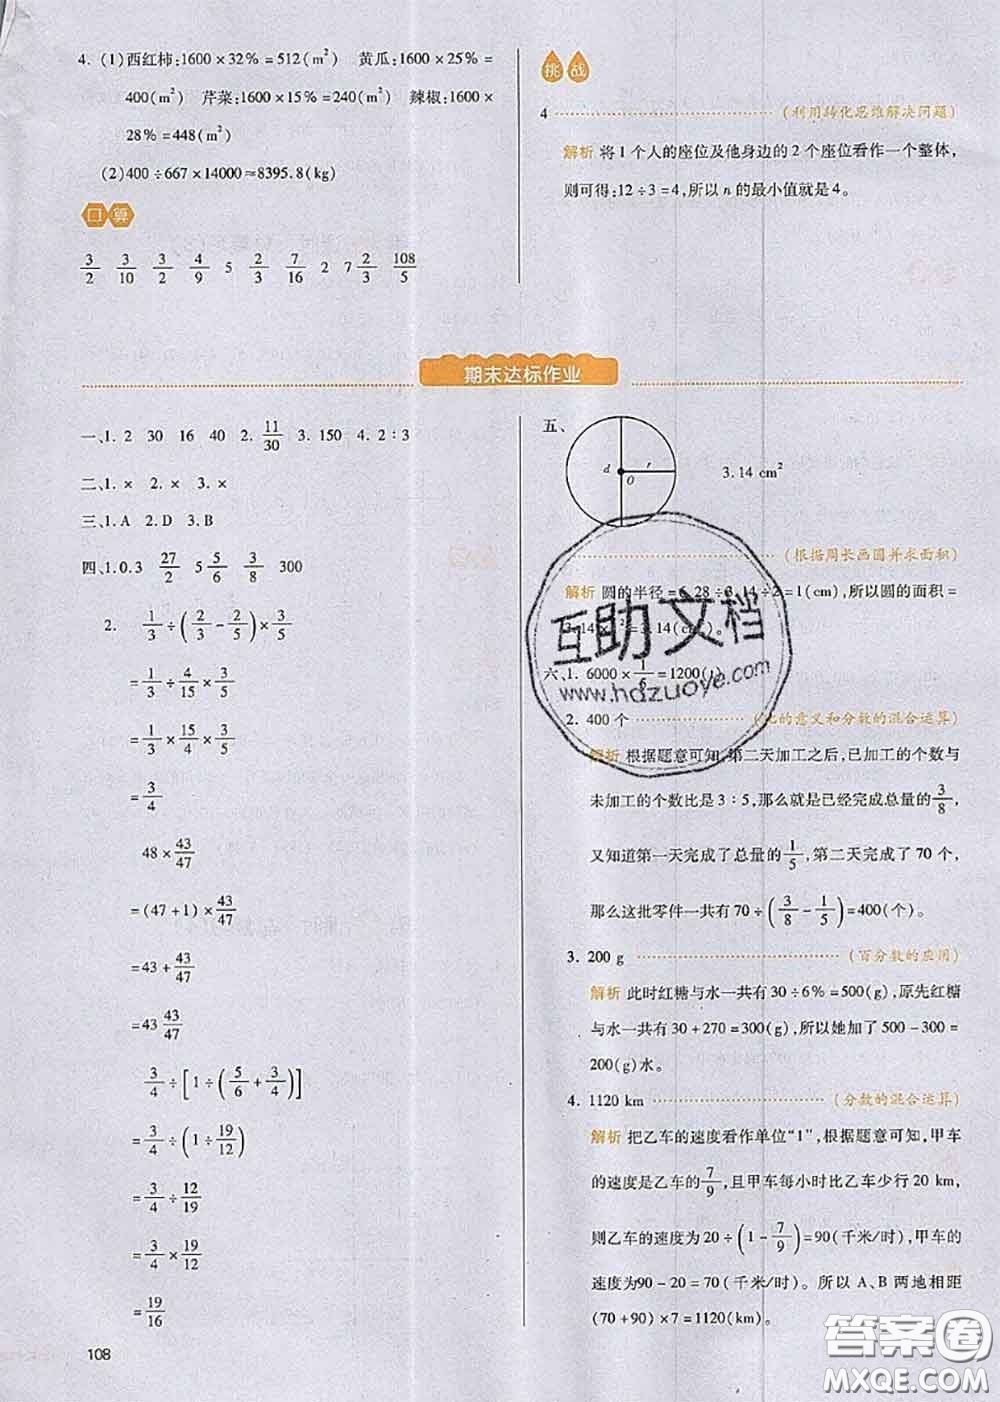 4. (1)西红柿:1600×32%=512(m²) 黄瓜:1600×25%=
400(m²) 芹菜:1600×15%=240(m²) 辣椒:1600×
28%=448(m²)
(2)400÷667×14000≈8395.8(kg)
口算
3/2 3/10 3/2 4/9 5 2/3 7/16 2 7 2/3 108/5
挑战
4 (利用转化思维解决问题)
解析 将1个人的座位及他身边的2个座位看作一个整体,
则可得:12÷3=4,所以n的最小值就是4。
期末达标作业
一、1. 2 30 16 40 2. 11/30 3. 150 4. 2∶3
二、1. × 2. × 3. ×
三、1. A 2. D 3. B
四、1. 0.3 27/2 5 5/6 3/8 300
2. 1/3÷(2/3-2/5)×3/5
=1/3÷4/15×3/5
=1/3×15/4×3/5
=3/4
48×43/47
=(47+1)×43/47
=43+43/47
=43 43/47
3/4÷[1÷(5/6+3/4)]
=3/4÷(1÷19/12)
=3/4÷12/19
=3/4×19/12
=19/16
108
五、
d r O 3.14 cm²
(根据周长画圆并求面积)
解析 圆的半径=6.28÷3.14÷2=1(cm),所以圆的面积=
3.14×1²=3.14(cm²)。
六、1. 6000×1/6=1200(t)
2. 400个 (比的意义和分数的混合运算)
解析 根据题意可知,第二天加工之后,已加工的个数与
未加工的个数比是3∶5,那么就是已经完成总量的3/8,
又知道第一天完成了总量的1/5,第二天完成了70个,
那么这批零件一共有70÷(3/8-1/5)=400(个)。
3. 200 g (百分数的应用)
解析 此时红糖与水一共有30÷6%=500(g),原先红糖
与水一共有30+270=300(g),所以她加了500-300=
200(g)水。
4. 1120 km (分数的混合运算)
解析 把乙车的速度看作单位“1”,根据题意可知,甲车
的速度是乙车的7/9,且甲车每小时比乙车少行20 km,
则乙车的速度为20÷(1-7/9)=90(千米/时),甲车的
速度为90-20=70(千米/时)。所以A、B两地相距
(70+90)×7=1120(km)。
互助文档
www.hdzuoye.com
答案圈
MXQE.COM